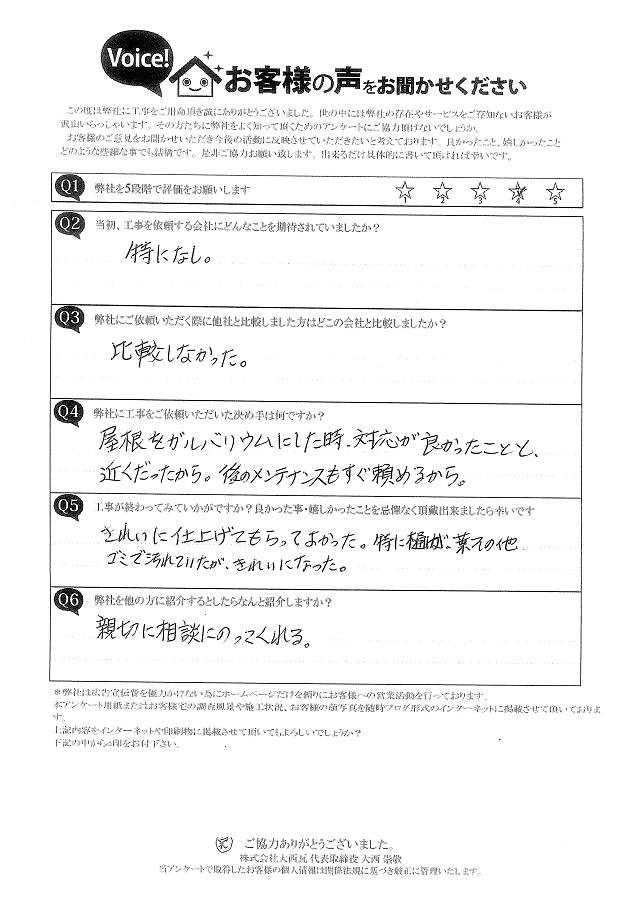 Voice!
お客様の声をお聞かせください
この度は弊社に工事をご用命頂き誠にありがとうございました。世の中には弊社の存在やサービスをご存知ないお客様が
沢山いらっしゃいます。その方たちに弊社をよく知って頂くためのアンケートにご協力頂けないでしょうか。
お客様のご意見をお聞かせいただき今後の活動に反映させていただきたいと考えております。良かったこと、嬉しかったこと
どのような些細な事でも結構です。是非ご協力お願い致します。出来るだけ具体的に書いて頂ければ幸いです。
Q1 弊社を5段階で評価をお願いします
1 2 3 4 5
Q2 当初、工事を依頼する会社にどんなことを期待されていましたか？
特になし。
Q3 弊社にご依頼いただく際に他社と比較しました方はどこの会社と比較しましたか？
比較しなかった。
Q4 弊社に工事をご依頼いただいた決め手は何ですか？
屋根をガルバリウムにした時、対応が良かったことと、
近くだったから。後のメンテナンスもすぐ頼めるから。
Q5 工事が終わってみていかがですか？良かった事・嬉しかったことを忌憚なく頂戴出来ましたら幸いです
きれいに仕上げてもらってよかった。特に樋は、葉その他
ゴミで汚れていたが、きれいになった。
Q6 弊社を他の方に紹介するとしたらなんと紹介しますか？
親切に相談にのってくれる。
＊弊社は広告宣伝費を極力かけない為にホームページだけを頼りにお客様への営業活動を行っております。
本アンケート用紙またはお客様宅の調査風景や施工状況、お客様の顔写真を随時ブログ形式のインターネットに掲載させて頂いておりま
す。
上記内容をインターネットや印刷物に掲載させて頂いてもよろしいでしょうか？
下記の中から○印をお付下さい。
ご協力ありがとうございました。
株式会社大西瓦 代表取締役 大西 崇敬
当アンケートで取得したお客様の個人情報は関係法規に基づき厳正に管理いたします。